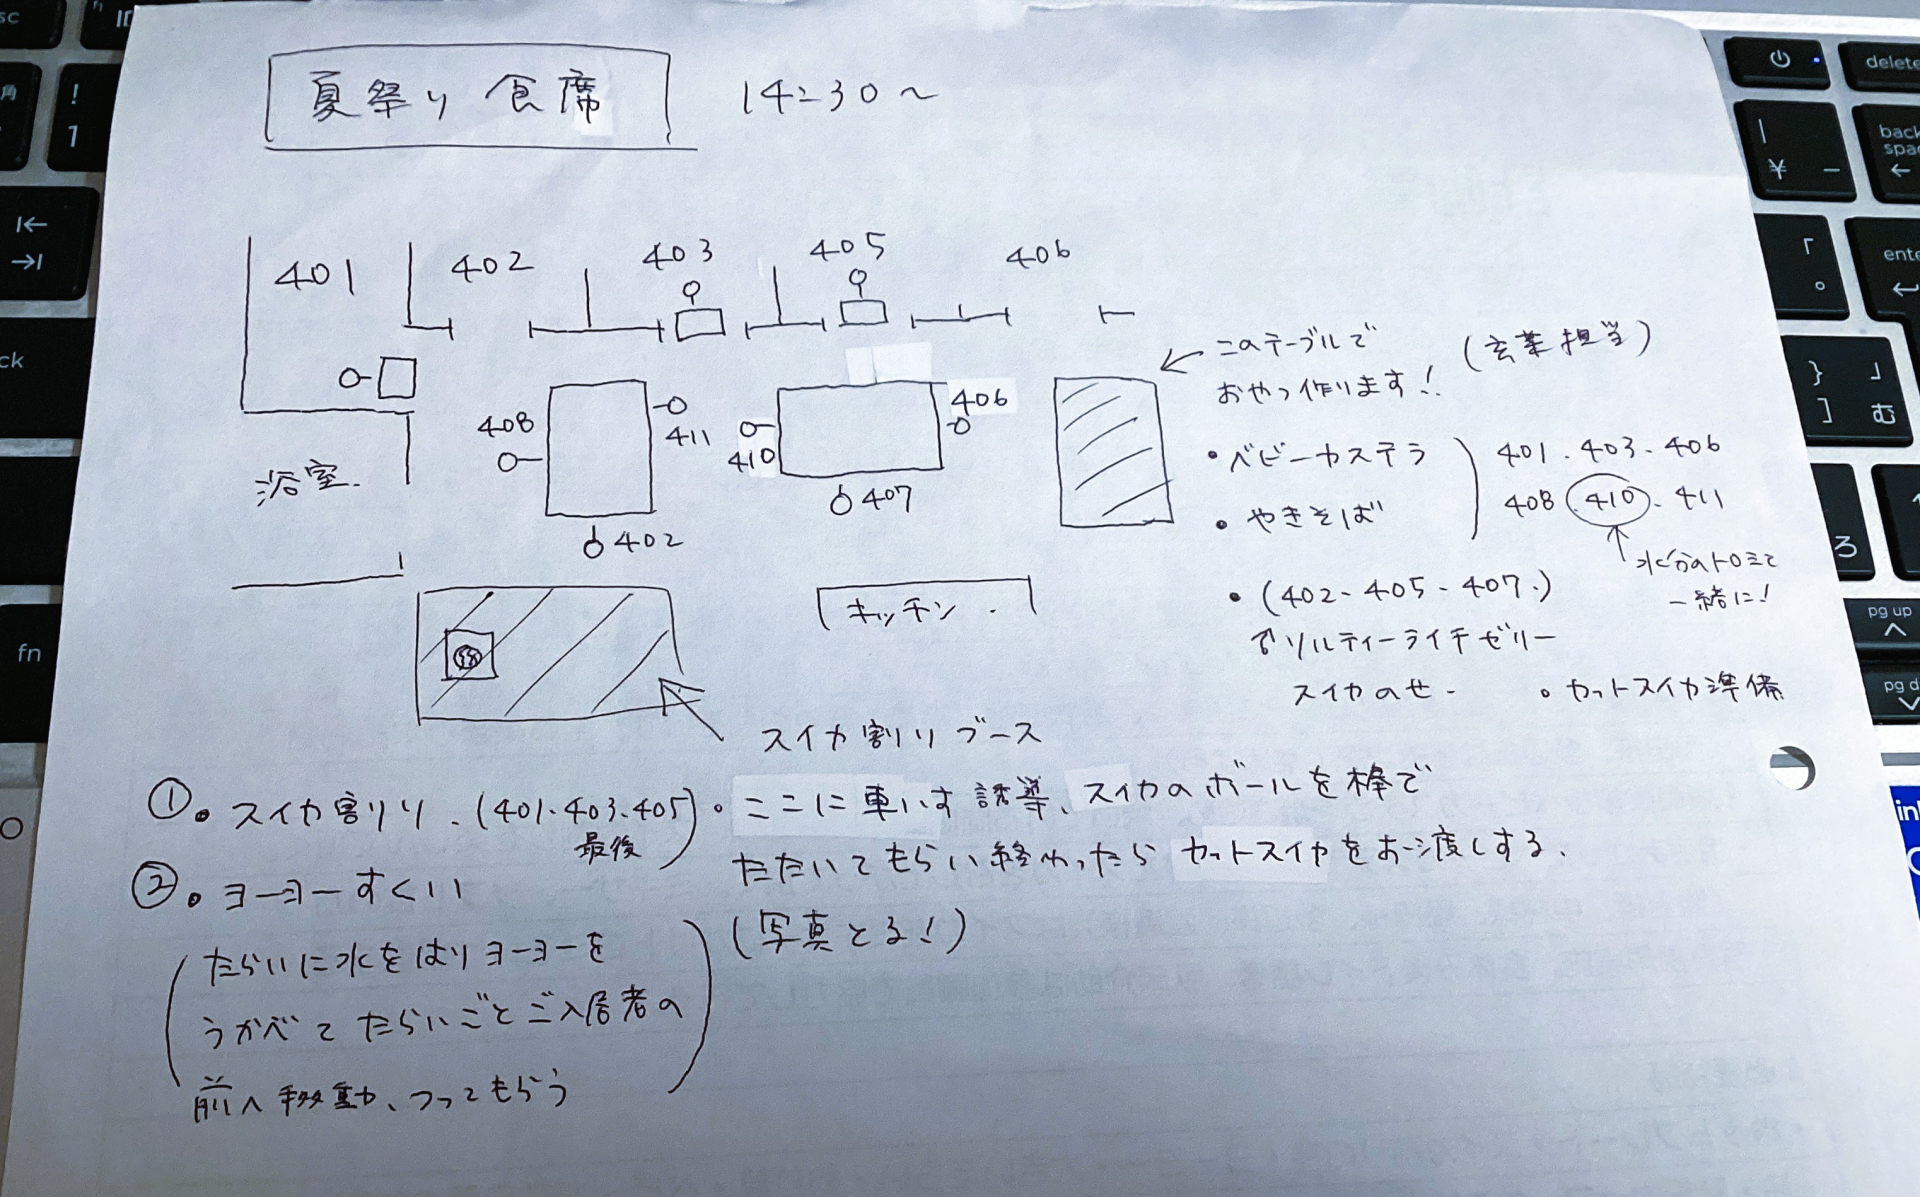 夏祭り 食席 14:30～
401
402
403
405
406
408
411
410
406
407
402
浴室.
キッチン.
スイカ割りブース
このテーブルで
おやつ作ります!!
担当)
・ベビーカステラ
・やきそば
401.403.406
408 410.411
水分のトロミで
一緒に!
・(402.405.407.)
ソルティーライチゼリー
スイカのせ
・カットスイカ準備
①・スイカ割り.(401.403.405)
最後
・ここに車いす誘導、スイカのボールを棒で
たたいてもらい終わったらカットスイカをお渡しする.
(写真とる!)
②・ヨーヨーすくい
(たらいに水をはりヨーヨーを
うかべてたらいごとご入居者の
前へ移動、つってもらう)
esc
!
1
fn
delete
back
space
¥
-
「
enter
}
]
」
む
ろ
pg up
pg d